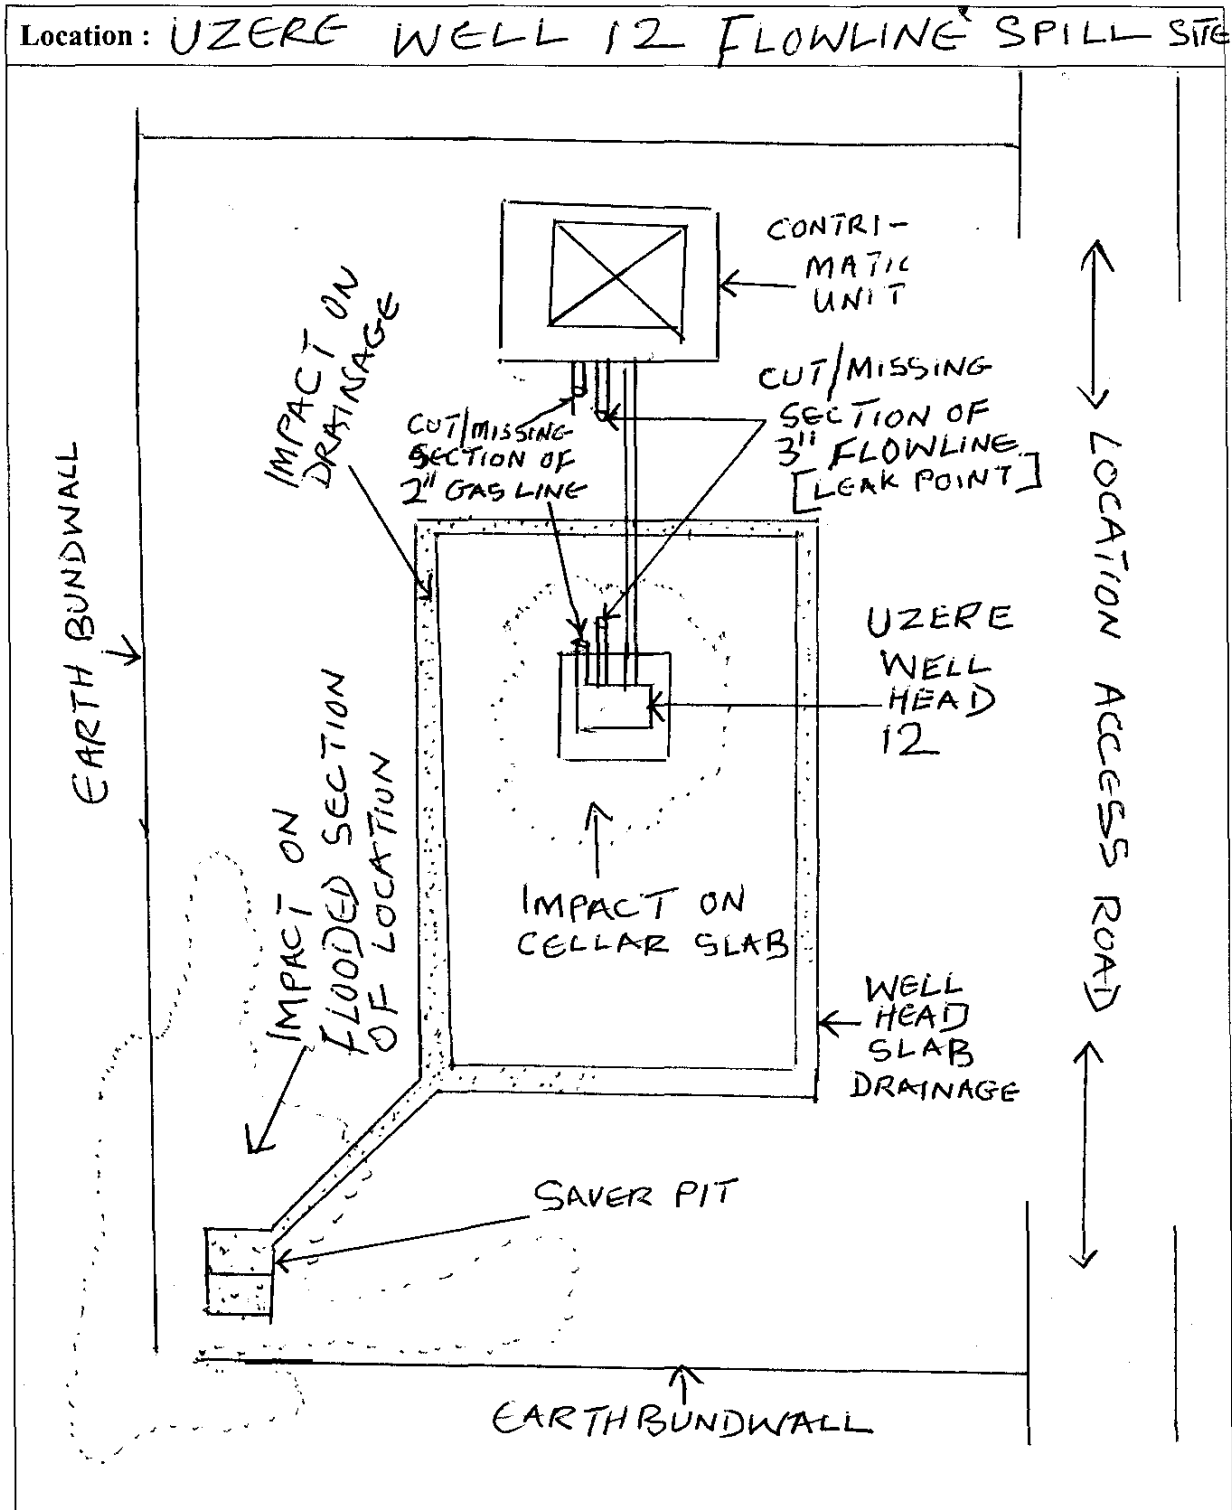 Location : UZERE WELL 12 FLOWLINE SPILL SITE
CONTRI-
MATIC
UNIT
IMPACT ON
DRAINAGE
CUT/MISSING
SECTION OF
2" GAS LINE
CUT/MISSING
SECTION OF
3" FLOWLINE
[LEAK POINT]
LOCATION ACCESS ROAD
EARTH BUNDWALL
UZERE
WELL
HEAD
12
IMPACT ON
FLOODED SECTION
OF LOCATION
IMPACT ON
CELLAR SLAB
WELL
HEAD
SLAB
DRAINAGE
SAVER PIT
EARTH BUNDWALL